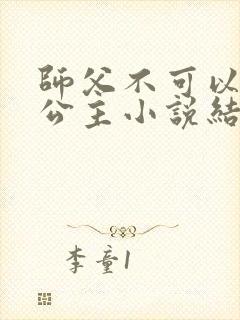 師父不可以
公主小說結
李童1